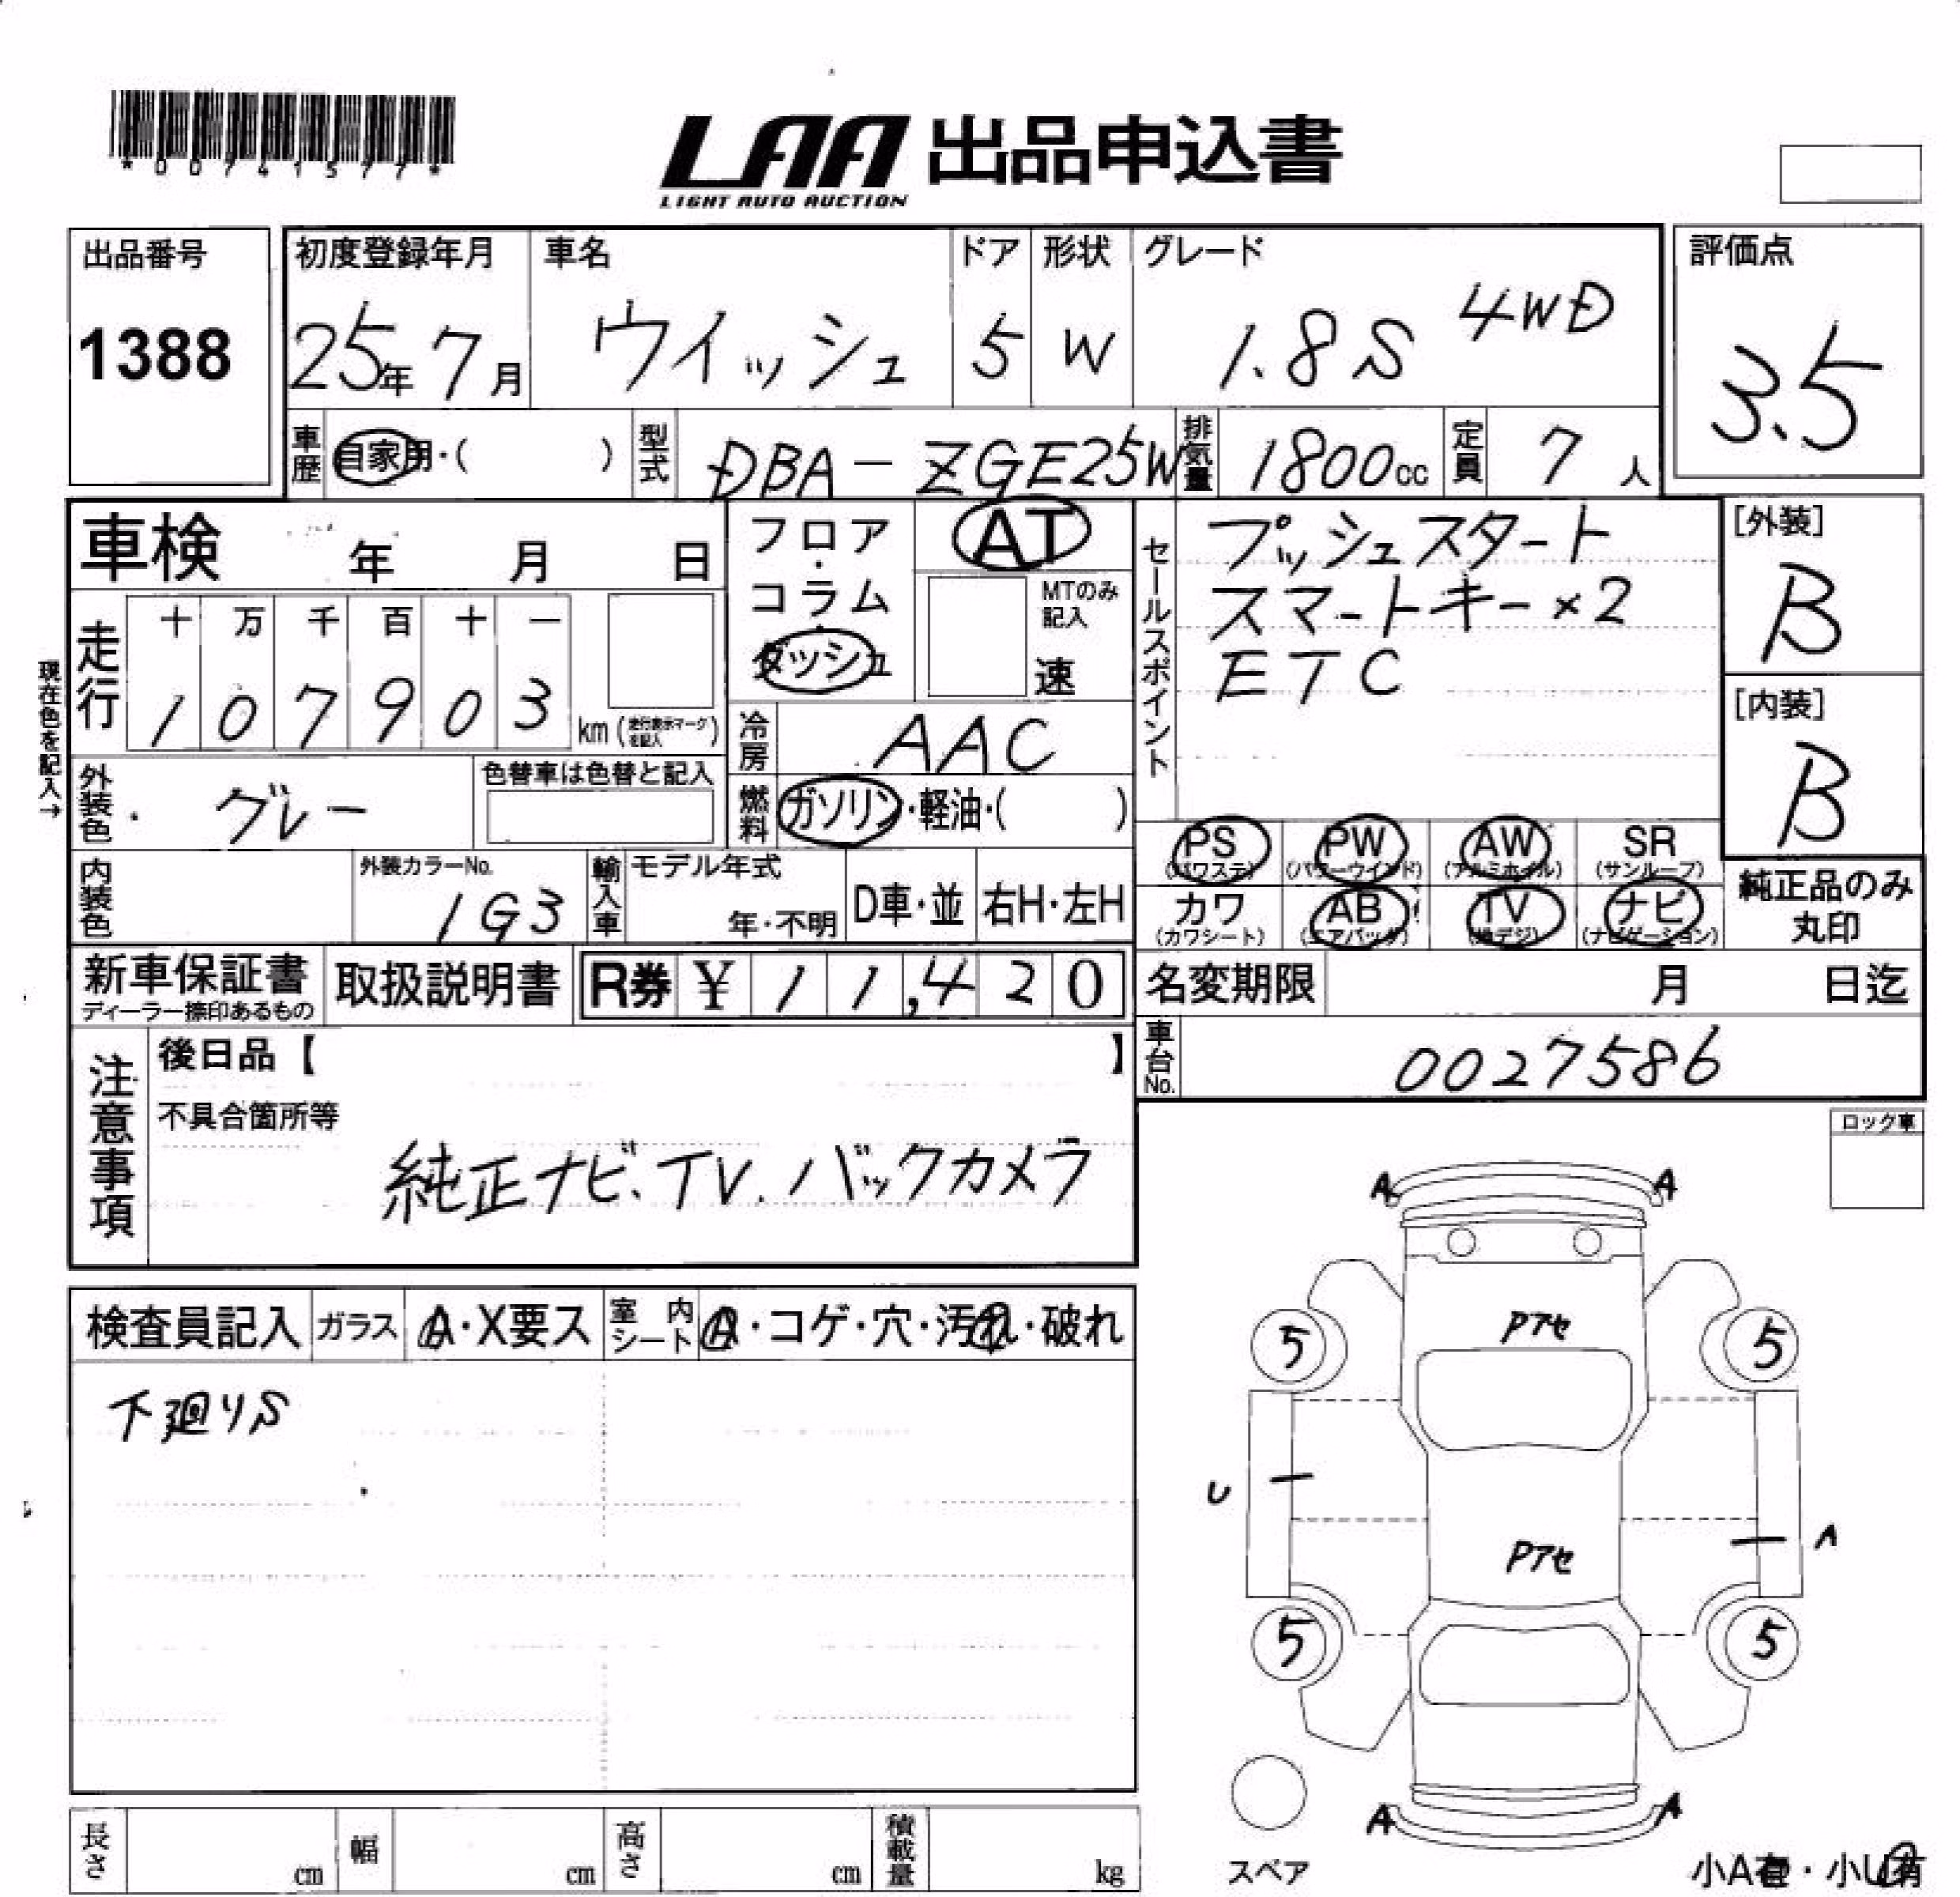 *00741577*
LAA 出品申込書
LIGHT AUTO AUCTION
出品番号
1388
初度登録年月
25年 7月
車名
ウイッシュ
ドア
5
形状
W
グレード
1.8S 4WD
評価点
3.5
車歴
自家用・( )
型式
DBA-ZGE25W
排気量
1800cc
定員
7人
車検 年 月 日
走行
十 万 千 百 十 一
1 0 7 9 0 3 km(走行表示マークを記入)
現在色を記入→
外装色
グレー
色替車は色替と記入
内装色
外装カラーNo.
1G3
フロア・コラム・ダッシュ
AT
MTのみ記入
速
冷房
AAC
燃料
ガソリン・軽油・( )
輸入車
モデル年式
年・不明
D車・並
右H・左H
セールスポイント
プッシュスタート
スマートキー×2
ETC
[外装]
B
[内装]
B
PS (パワステ)
PW (パワーウインド)
AW (アルミホイル)
SR (サンルーフ)
カワ (カワシート)
AB (エアバッグ)
TV (地デジ)
ナビ (ナビゲーション)
純正品のみ丸印
新車保証書
ディーラー捺印あるもの
取扱説明書
R券 ¥ 11,420
名変期限 月 日迄
車台No.
0027586
注意事項
後日品【 】
不具合箇所等
純正ナビ、TV、バックカメラ
ロック車
検査員記入
ガラス
A・X要ス
室内シート
・コゲ・穴・汚れ・破れ
下廻りS
A A
Pアセ
5 5
U
A
Pアセ
5 5
A A
スペア
小A有・小U有
長さ cm
幅 cm
高さ cm
積載量 kg